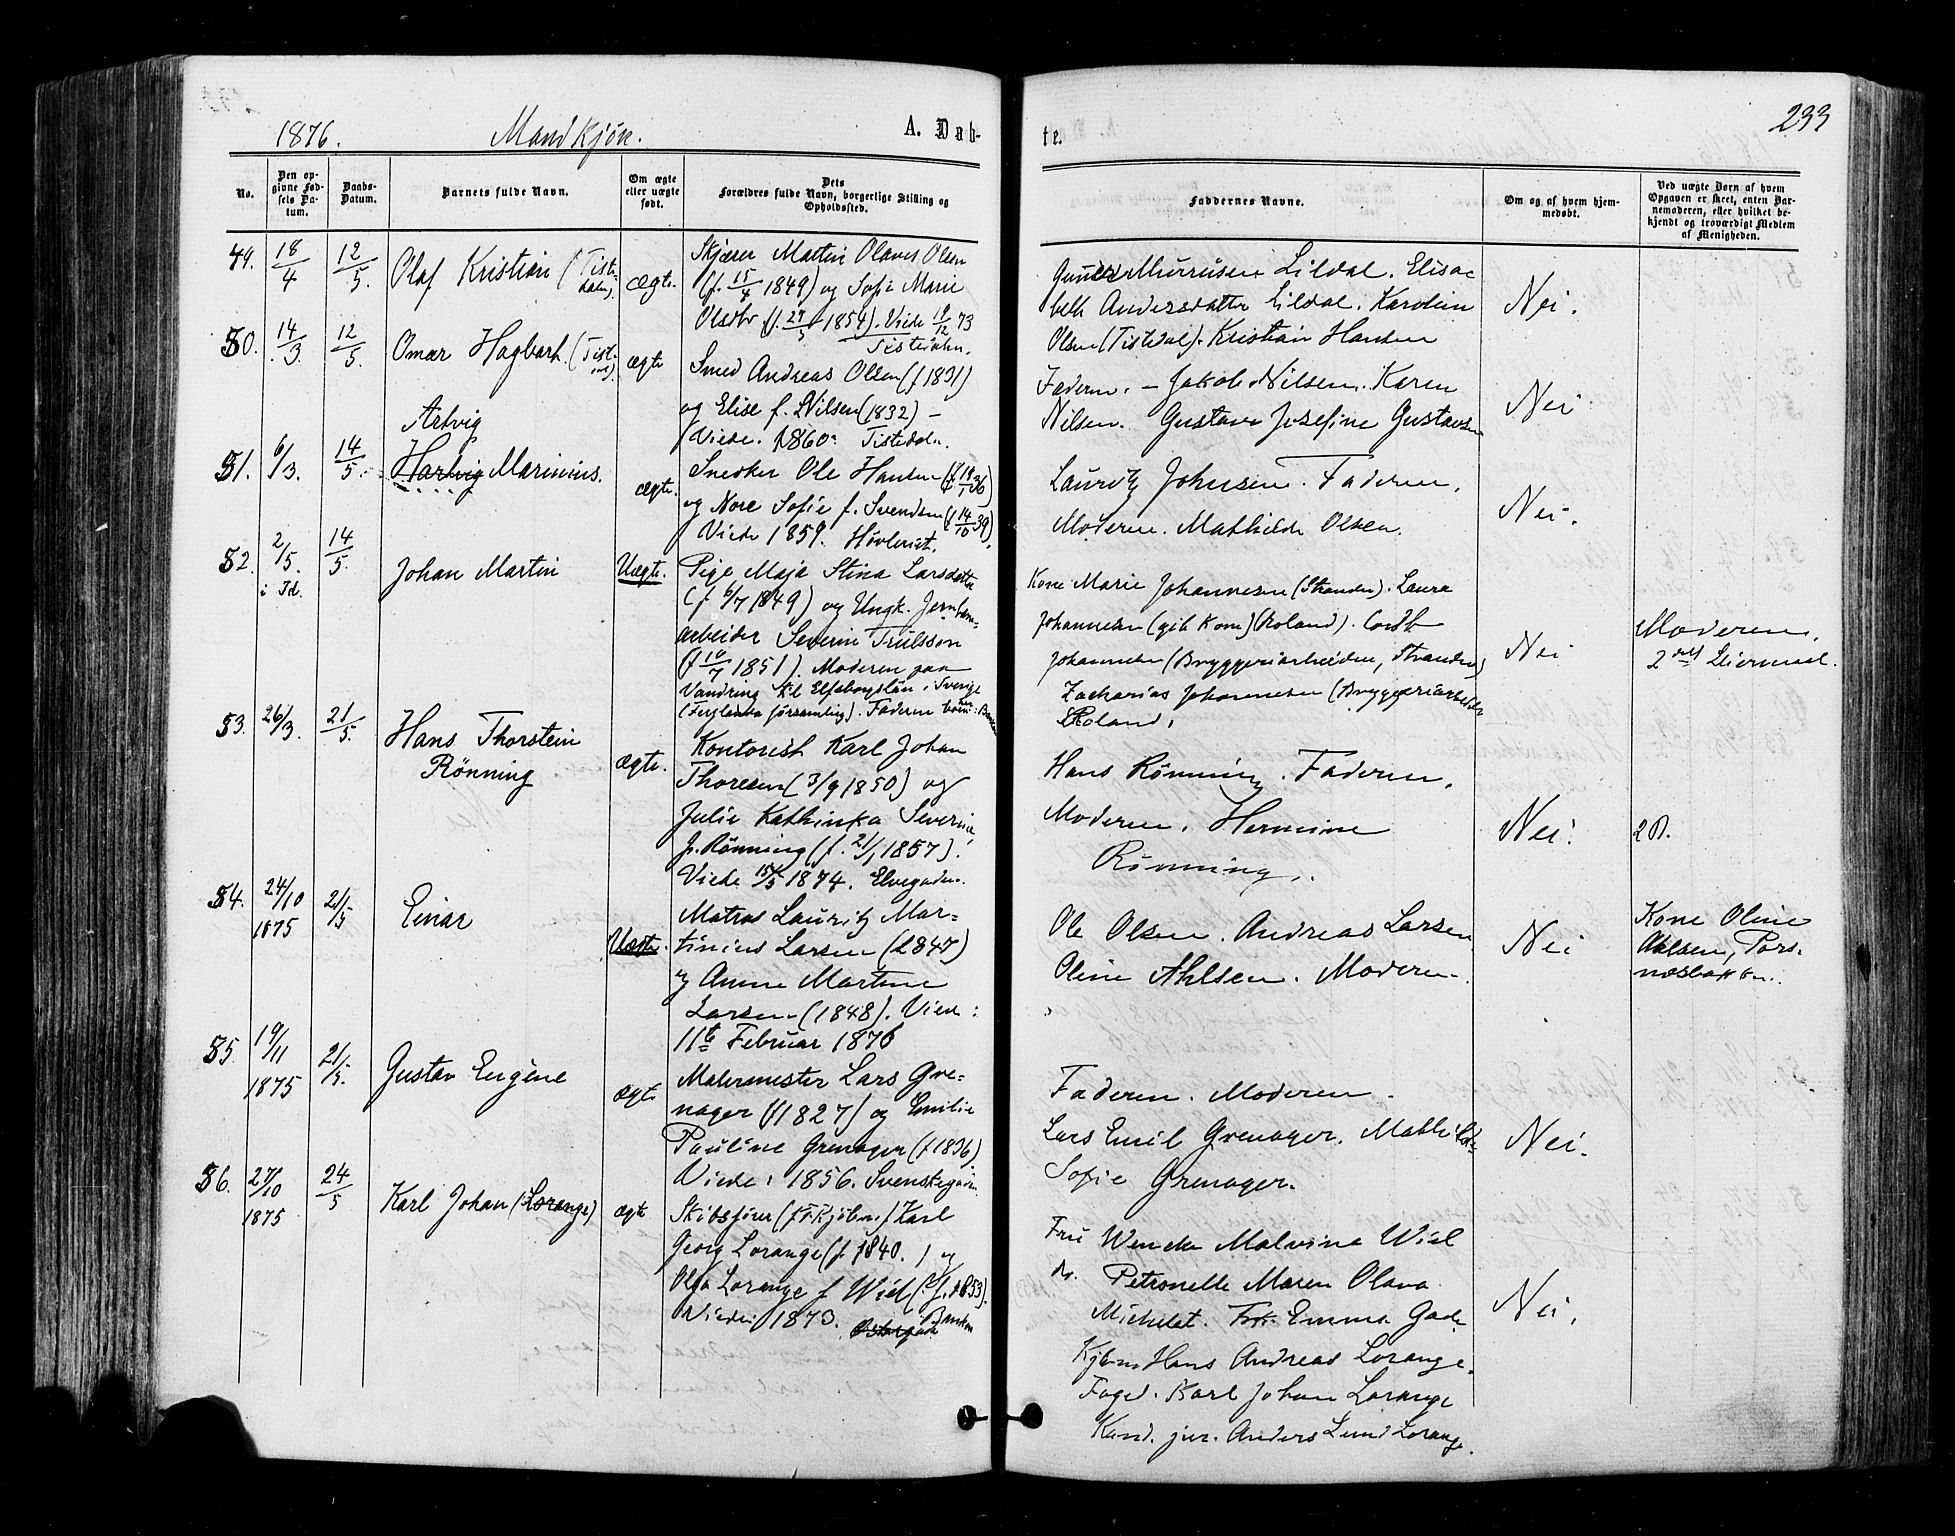 1876.
Mandkjøn.
A. Dab-
te.
233
No.
Den op-
givne Fød-
sels Da-
tum.
Daabs-
Datum.
Barnets fulde Navn.
Om ægte
eller uægte
født.
Dets
Forældres fulde Navn, borgerlige Stilling og
Opholdssted.
Faddernes Navne.
Om og af hvem hjem-
medøbt.
Ved uægte Børn af hvem
Opgaven er skeet, enten Bar-
nemoderen, eller hvilket be-
kjendt og troværdigt Medlem
af Menigheden.
49. 18/4 12/5. Olaf Kristian (Tiste-
dalen) ægte.
Skjærer Martin Olaves Olsen
(f. 15/4 1849) og Sofie Marie
Olsdtr (f. 27/3 1854). Viede 19/12 73
Tistedalen.
Lildal. Elisa-
beth Andersdatter Lildal. Karoline
Olsen (Tistedal). Kristian Hansen
Nei.
50. 14/3. 12/5 Omar Hagbart. (Tist-
ægte
Smed Andreas Olsen (f 1831)
og Elise f. Nilsen (1832) –
Viede. 1860. Tistedaln.
Faderen. – Jakob Nilsen. Karen
Nilsen. Gustava Josefine Gustavsen
Nei
Artvig
51. 6/3. 14/5. Hartvig Marinius. ægte.
Snedker Ole Hansen (f 19/1 36)
og Nore Sofie f. Svendsen (f 14/10 39).
Viede 1859. Høvleriet.
Lauritz Johnsen. Faderen.
Moderen. Mathilde Olsen.
Nei.
52. 2/5. 14/5. Johan Martin Uægte.
i Td.
Pige Maja Stina Larsdatter
(f 6/7 1849) og Ungk. Jernban-
arbeider Severin Trulsson
(f 10/7 1851). Moderen paa
Vandring til Elfsborgslän i Sverige
(Ferglanda församling). Faderen
Kone Marie Johannesen (Stranden). Laura
Johannesen (gift Kone) (Roland).
Johannesen (Bryggeriarbeider, Stranden)
Zacharias Johannesen (Bryggeriarbeider
Roland.
Nei
Moderen.
2det Leiermaal.
53. 26/3. 21/5. Hans Thorstein
Rönning ægte.
Kontorist Karl Johan
Thoresen (3/9 1850) og
Julie Kathinka Severine
f. Rönning (f. 21/1 1857).
Viede 15/5 1874. Elvegaden.
Hans Rönning. Faderen.
Moderen. Hermine
Rönning.
Nei.
2D.
54. 24/10 21/5 Einar Uægte.
1875
Matros Lauritz Mar-
tinius Larsen (1847)
og Anne Martine
Larsen (1848). Viede:
11te Februar 1876
Ole Olsen. Andreas Larsen
Oline Ahlsen. Moderen.
Nei
Kone Oline
Ahlsen, Pors-
næsbakken.
55. 19/11 21/5. Gustav Eugène ægte
1875
Malermester Lars Gre-
nager (f 1827) og Emilie
Pauline Grenager (f 1836).
Viede: 1856. Svenskegaden.
Faderen. Moderen.
Lars Emil Grenager. Mathilde
Sofie Grenager.
Nei.
56. 27/10 24/5 Karl Johan (Lorange) ægte
1875
Skibsfører Karl
Georg Lorange (f. 1840.) og
Olga Lorange f Wiel (f. 1853).
Viede: 1873. Banken
Fru Wenche Malvina Wiel
do. Petronelle Maren Olava
Michelet. Frk. Emma Gade
Kjøbm Hans Andreas Lorange.
Foged. Karl Johan Lorange
Kand. jur. Anders Lund Lorange.
Nei.